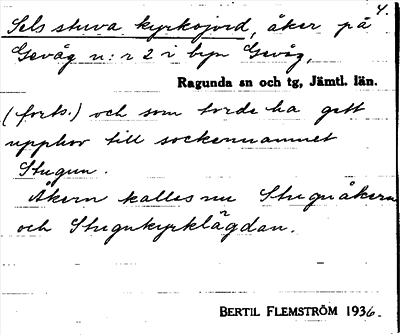 4.
Sels stuva kyrkojord, åker på
Gevåg n:r 2 i byn Gevåg,
Ragunda sn och tg, Jämtl. län.
(forts.) och som torde ha gett
upphov till sockennamnet
Stugun.
Åkern kallas nu Stuguåkern
och Stugukyrklägdan.
BERTIL FLEMSTRÖM 1936.